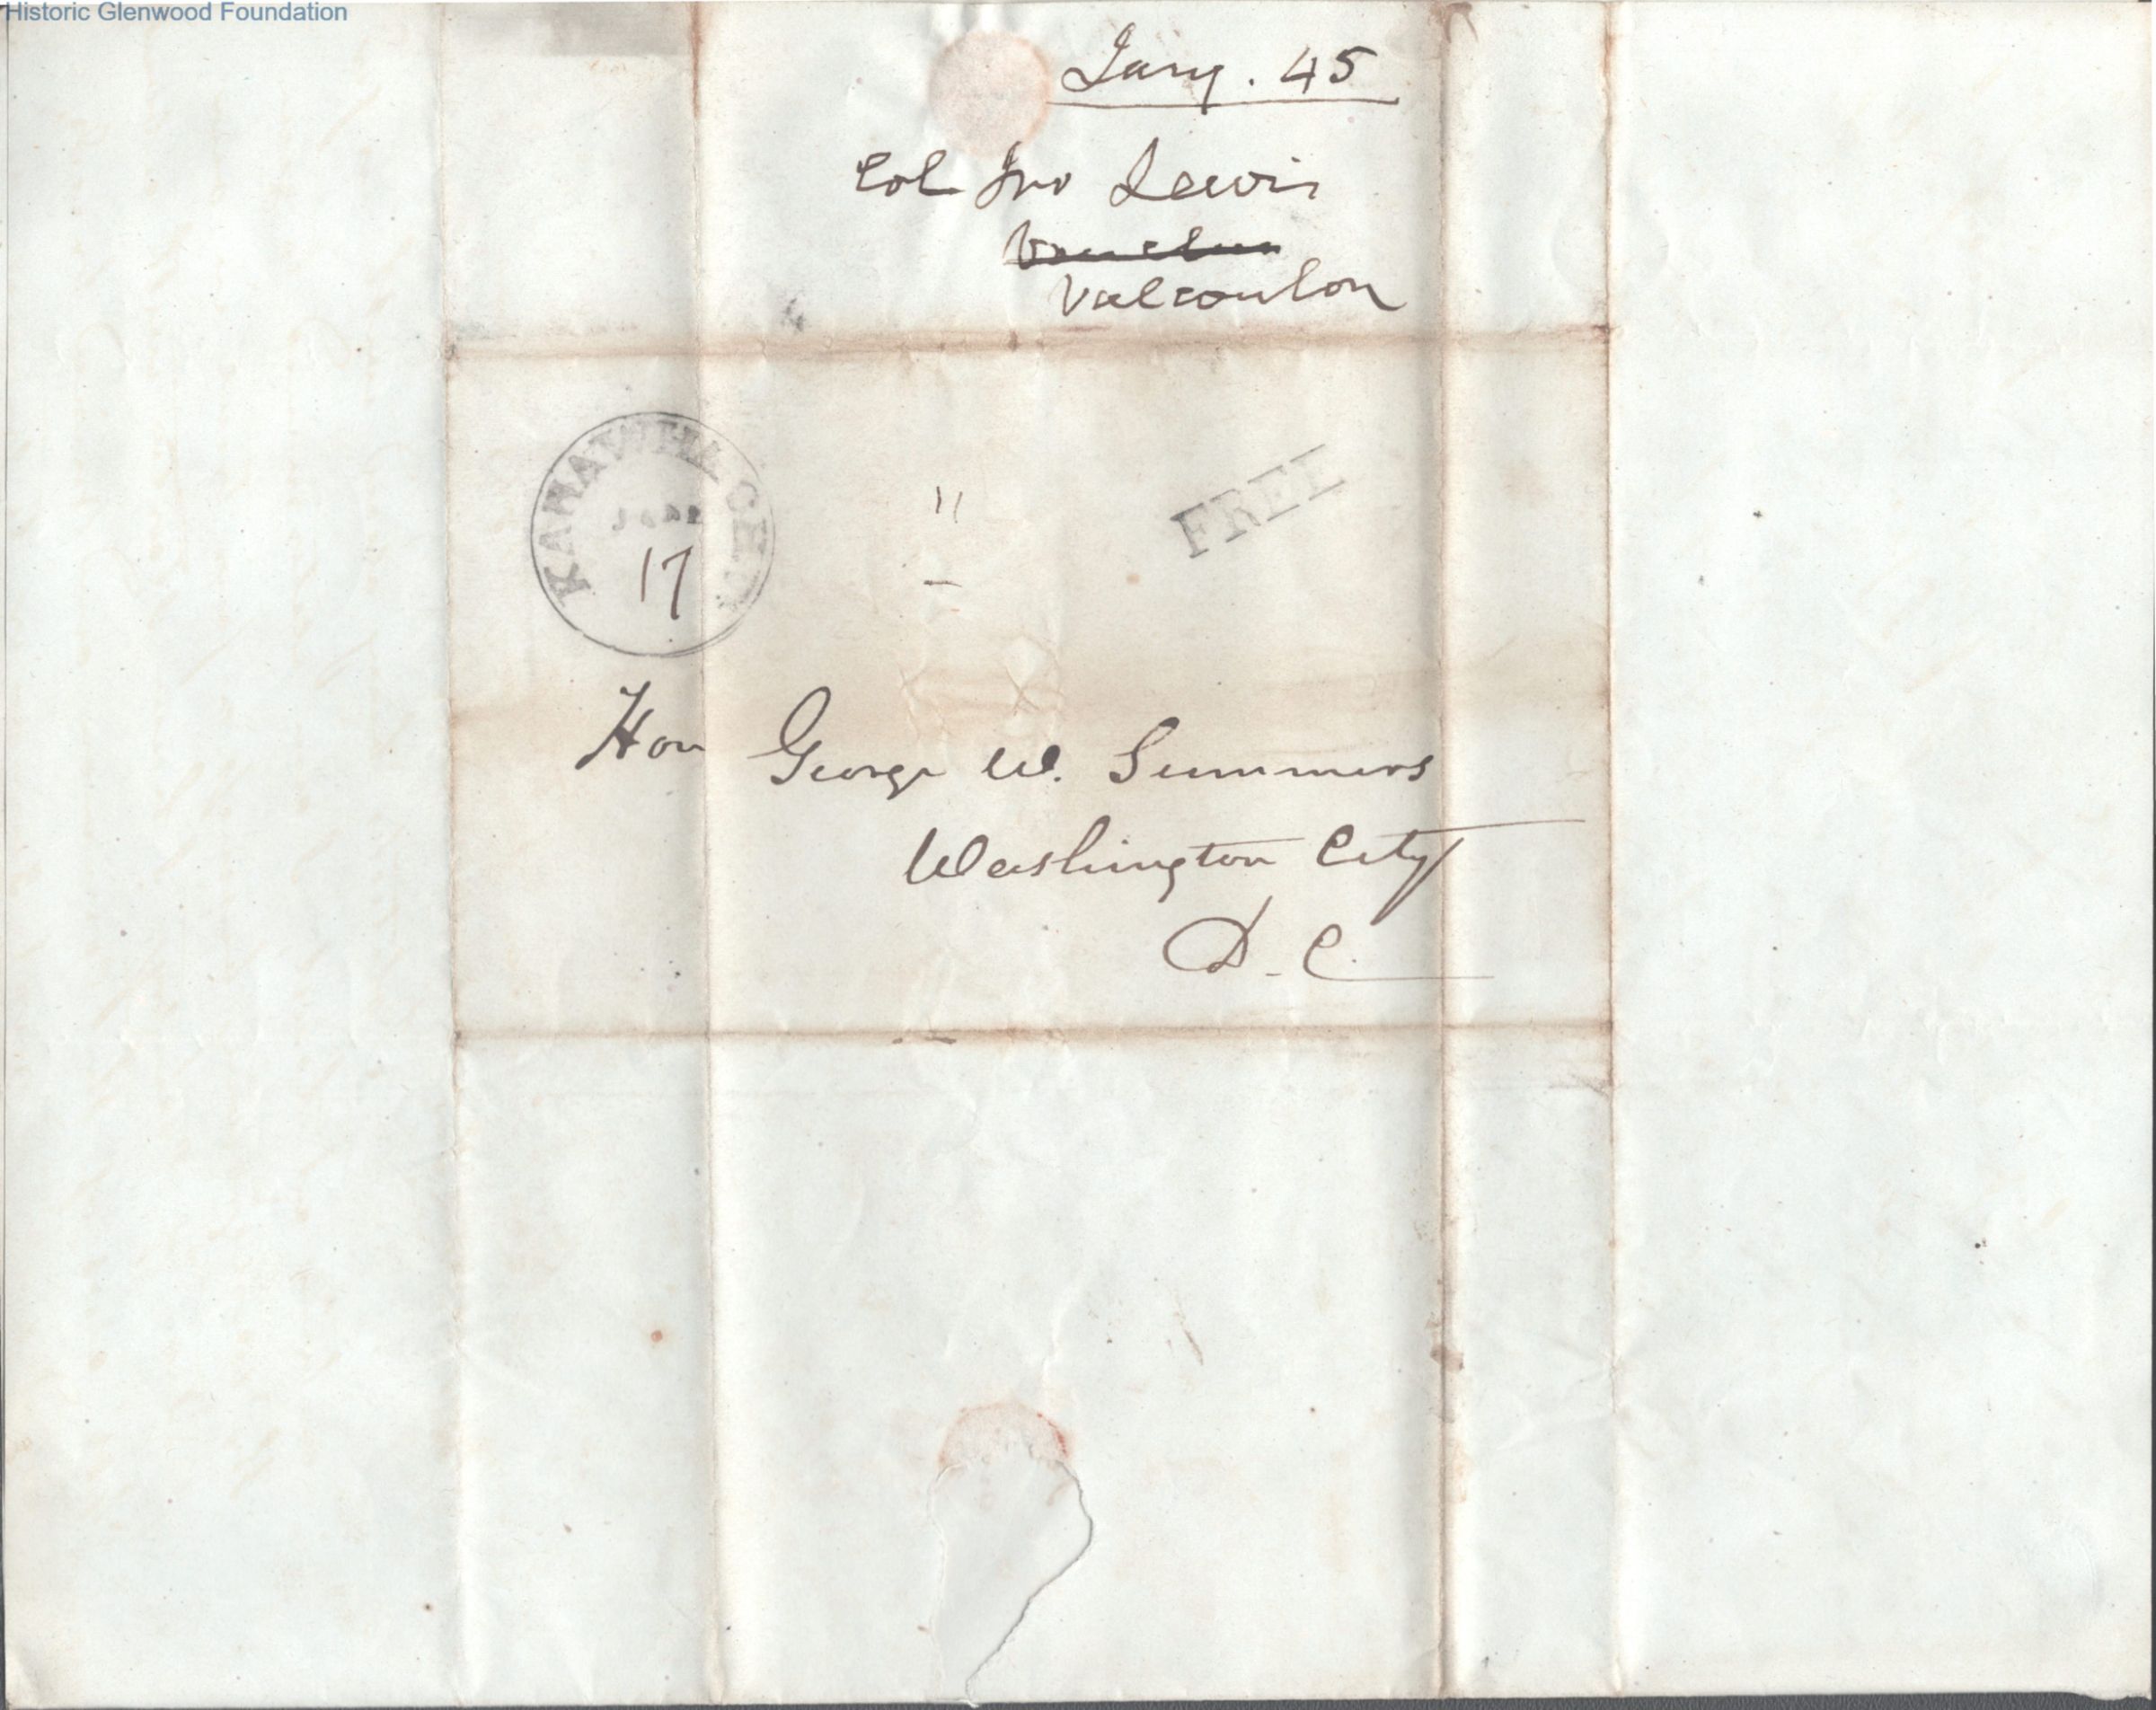 Historic Glenwood Foundation
Jany. 45
Col Jno Lewis
Valcoulon
KANAWHA C.H.
17
FREE
Hon George W. Summers
Washington City
D. C.